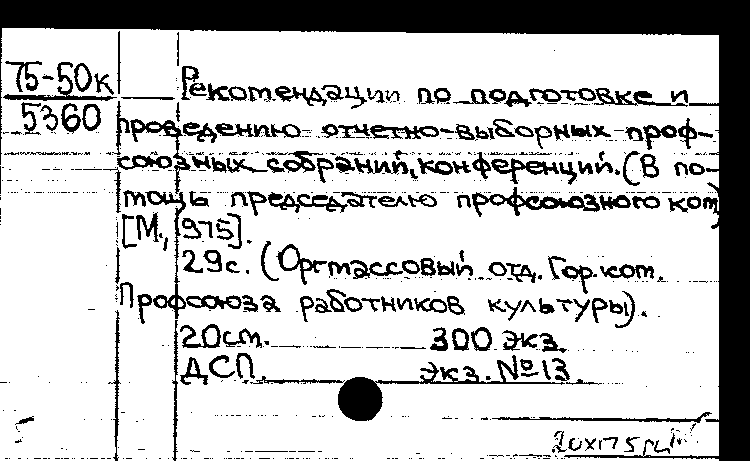 75-50к
5360
Рекомендации по подготовке и
проведению отчетно-выборных проф-
союзных собраний, конференций. (В по-
мощь председателю профсоюзного ком)
[М., 1975].
29с. (Оргмассовый отд. Гор.ком.
Профсоюза работников культуры).
20см. 300 экз.
ДСП. экз. №13.